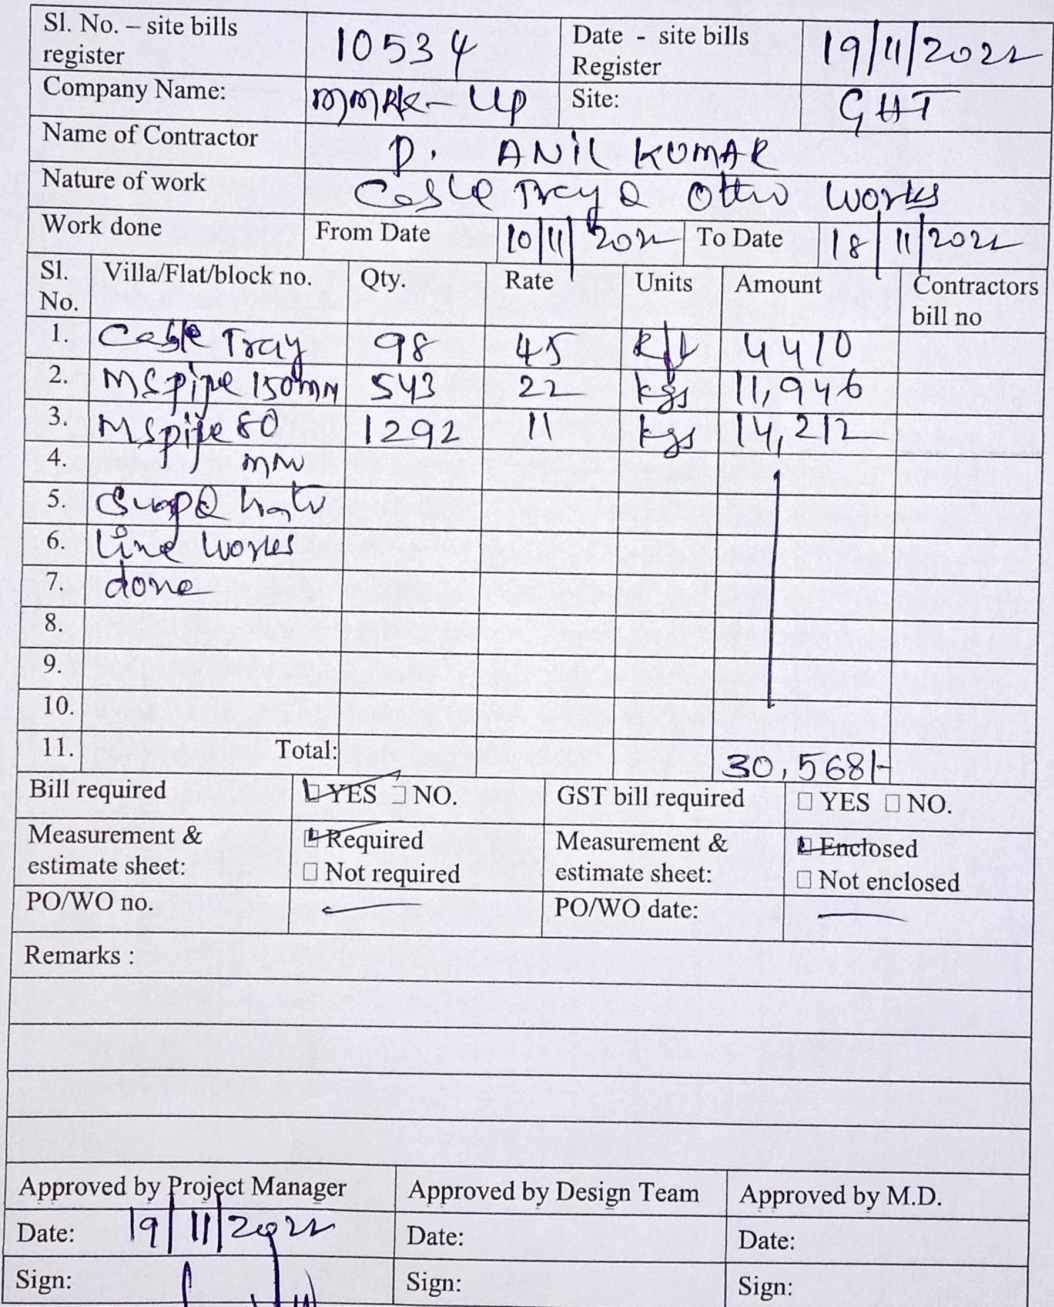 Sl. No. – site bills register 10534 Date - site bills Register 19/11/2022
Company Name: MMRK-Up Site: GHT
Name of Contractor D. ANIL KUMAR
Nature of work Cable Tray & Other works
Work done From Date 10/11/2022 To Date 18/11/2022
Sl. No. Villa/Flat/block no. Qty. Rate Units Amount Contractors bill no
1. Cable Tray 98 45 4410
2. MS pipe 150mm 543 22 kgs 11,946
3. MS pipe 80 1292 11 kgs 14,212
4. mm
5.
6. Line works
7. done
8.
9.
10.
11. Total: 30,568/-
Bill required YES NO. GST bill required YES NO.
Measurement & estimate sheet: Required Not required Measurement & estimate sheet: Enclosed Not enclosed
PO/WO no. PO/WO date:
Remarks :
Approved by Project Manager Approved by Design Team Approved by M.D.
Date: 19/11/2022 Date: Date:
Sign: Sign: Sign: